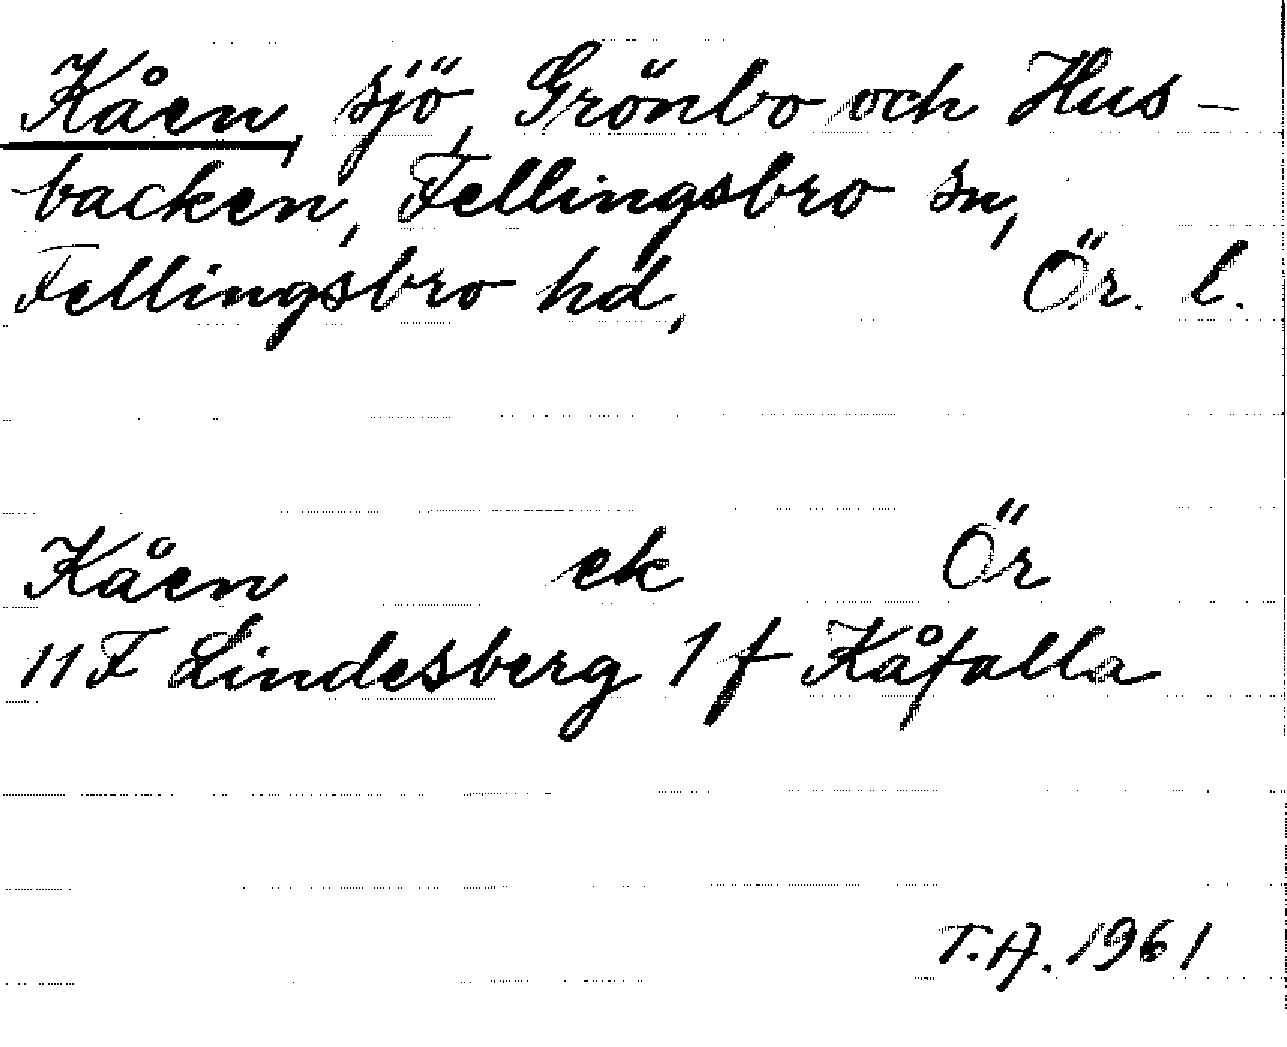 Kåen, sjö, Grönbo och Hus-
backen, Fellingsbro sn,
Fellingsbro hd, Ör. l.
Kåen ek Ör
11F Lindesberg 1 f Kåfalla
T.A. 1961